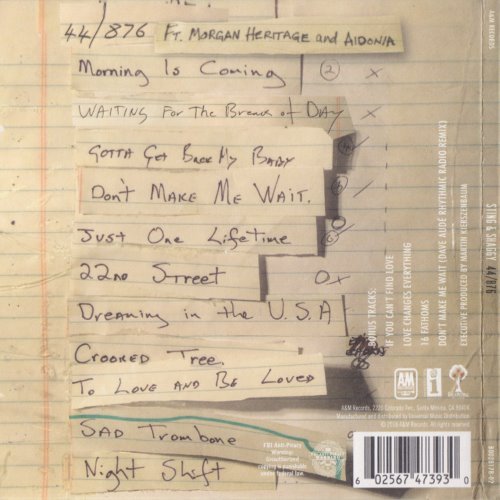 44/876 FT. MORGAN HERITAGE and AIDONIA
Morning Is Coming ② x
WAITING For The Break of DAY x
GOTTA Get Back My BABY
Don't MAKE ME WAIT.
Just One Lifetime
22nd Street 0x
Dreaming in the U.S.A
CROOKED TREE.
To LOVE AND BE LOVED
SAD Trombone
Night Shift
BONUS TRACKS:
IF YOU CAN'T FIND LOVE
LOVE CHANGES EVERYTHING
16 FATHOMS
DON'T MAKE ME WAIT (DAVE AUDÉ RHYTHMIC RADIO REMIX)
EXECUTIVE PRODUCED BY MARTIN KIERSZENBAUM
STING & SHAGGY 44/876
A&M RECORDS
A&M
i
FBI Anti-Piracy
Warning:
Unauthorized
copying is punishable
under federal law.
A&M Records, 2220 Colorado Ave., Santa Monica, CA 90404
Manufactured and distributed by Universal Music Distribution
© 2018 A&M Records. All rights reserved.
6 02567 47393 0